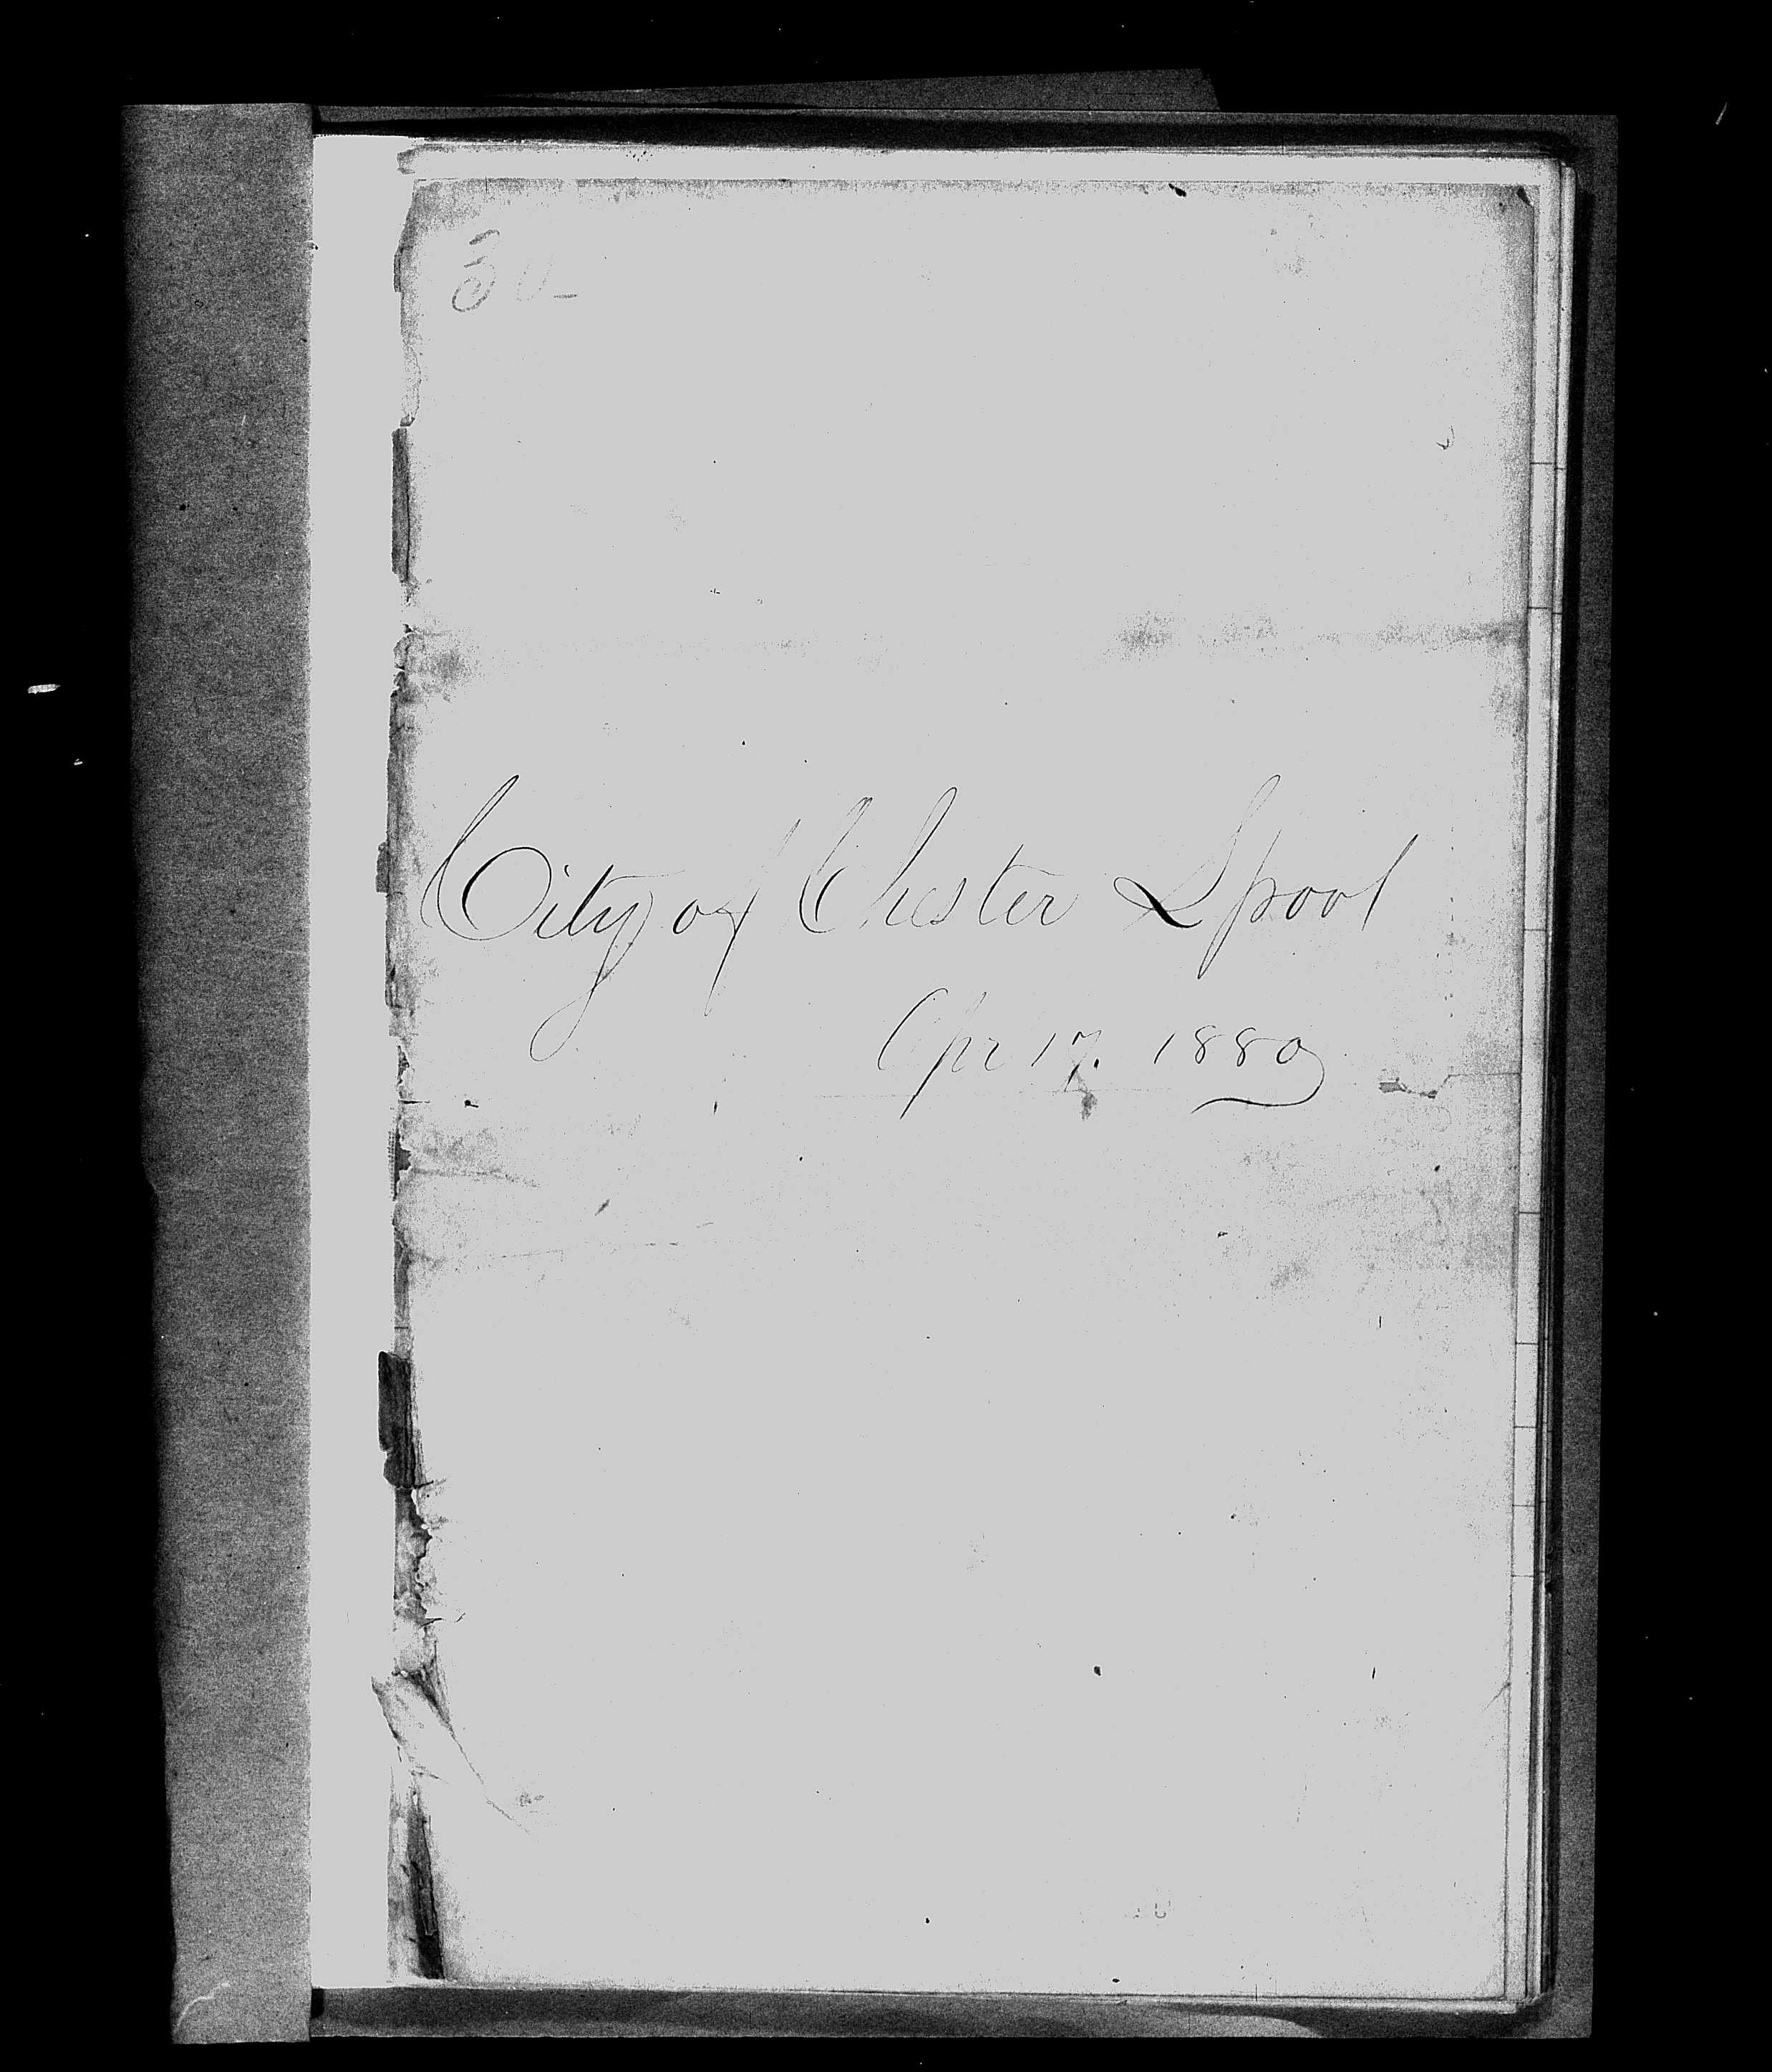 City of Chester L pool
Apr 17. 1880